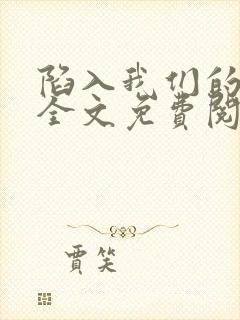 陷入我们的
全文免费阅
贾笑